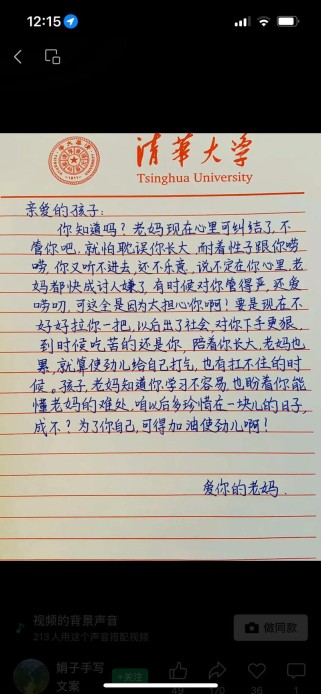 12:15
清华大学
Tsinghua University
亲爱的孩子:
你知道吗?老妈现在心里可纠结了,不
管你吧,就怕耽误你长大,耐着性子跟你唠
唠,你又听不进去,还不乐意,说不定在你心里,老
妈都快成讨人嫌了,有时候对你管得严,还爱
唠叨,可这全是因为太担心你啊!要是现在不
好好拉你一把,以后出了社会,对你下手更狠,
到时候吃苦的还是你,陪着你长大,老妈也
累,就算使劲儿给自己打气,也有扛不住的时
候。孩子,老妈知道你学习不容易,也盼着你能
懂老妈的难处,咱以后多珍惜在一块儿的日子,
成不?为了你自己,可得加油使劲儿啊!
爱你的老妈.
视频的背景声音
213人用这个声音搭配视频
做同款
娟子手写
文案
+关注
49
120
36
1